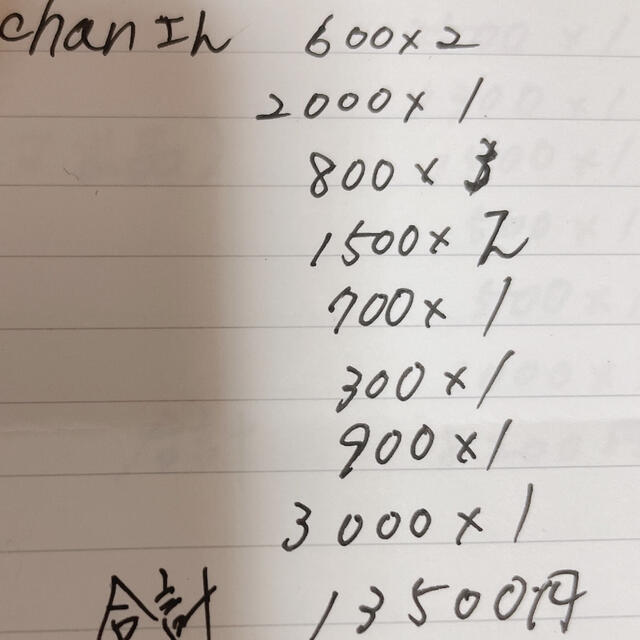 chan エん 600×2
2000×1
800×3
1500×2
700×1
300×1
900×1
3000×1
合計 13500円